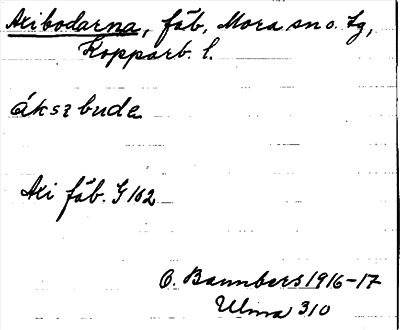 Axibodarna, fäb, Mora sn o. tg,
Kopparb. l.
áksz bude
Axi fäb. G 102
O. Bannbers 1916-17
Ulma 310